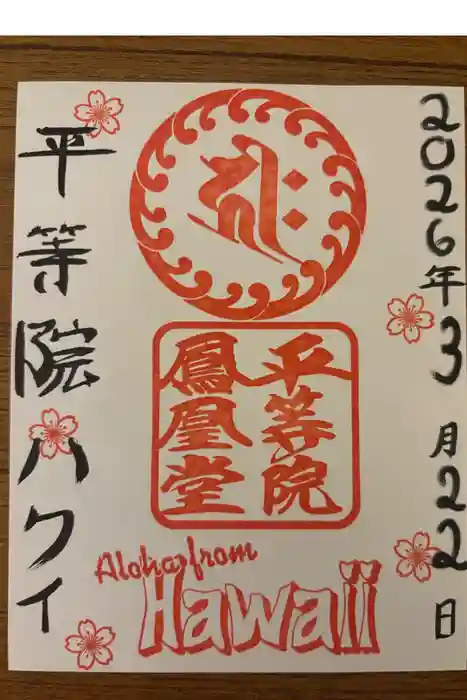 2026年3月22日
平等院
鳳凰堂
平等院ハワイ
Aloha from
Hawaii